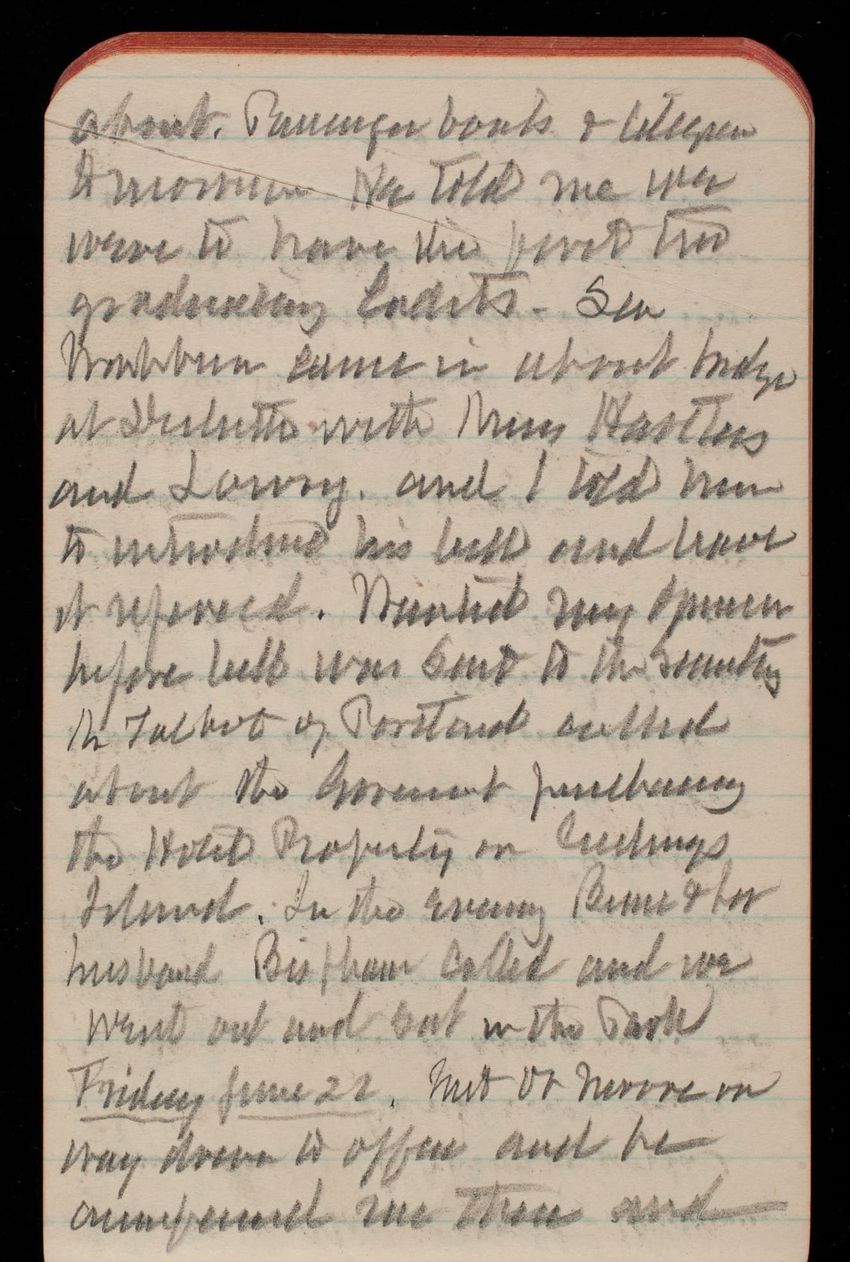 about. Passenger boats &
tomorrow He told me we
were to have the first two
graduating Cadets - Sen
Washburn came in about bridge
at Duluth with Hastings
and Lowry. and I told him
to introduce his bill and have
it referred. Wanted my opinion
before bill was sent to the Secretary
Mr Talbot of Portland called
about the Goverment purchasing
the Hotel Property on Cushings
Island. In the evening & her
husband Bispham called and we
went out and sat in the Park
Friday June 22. Met Dr on
way down to office and he
accompanied me there and